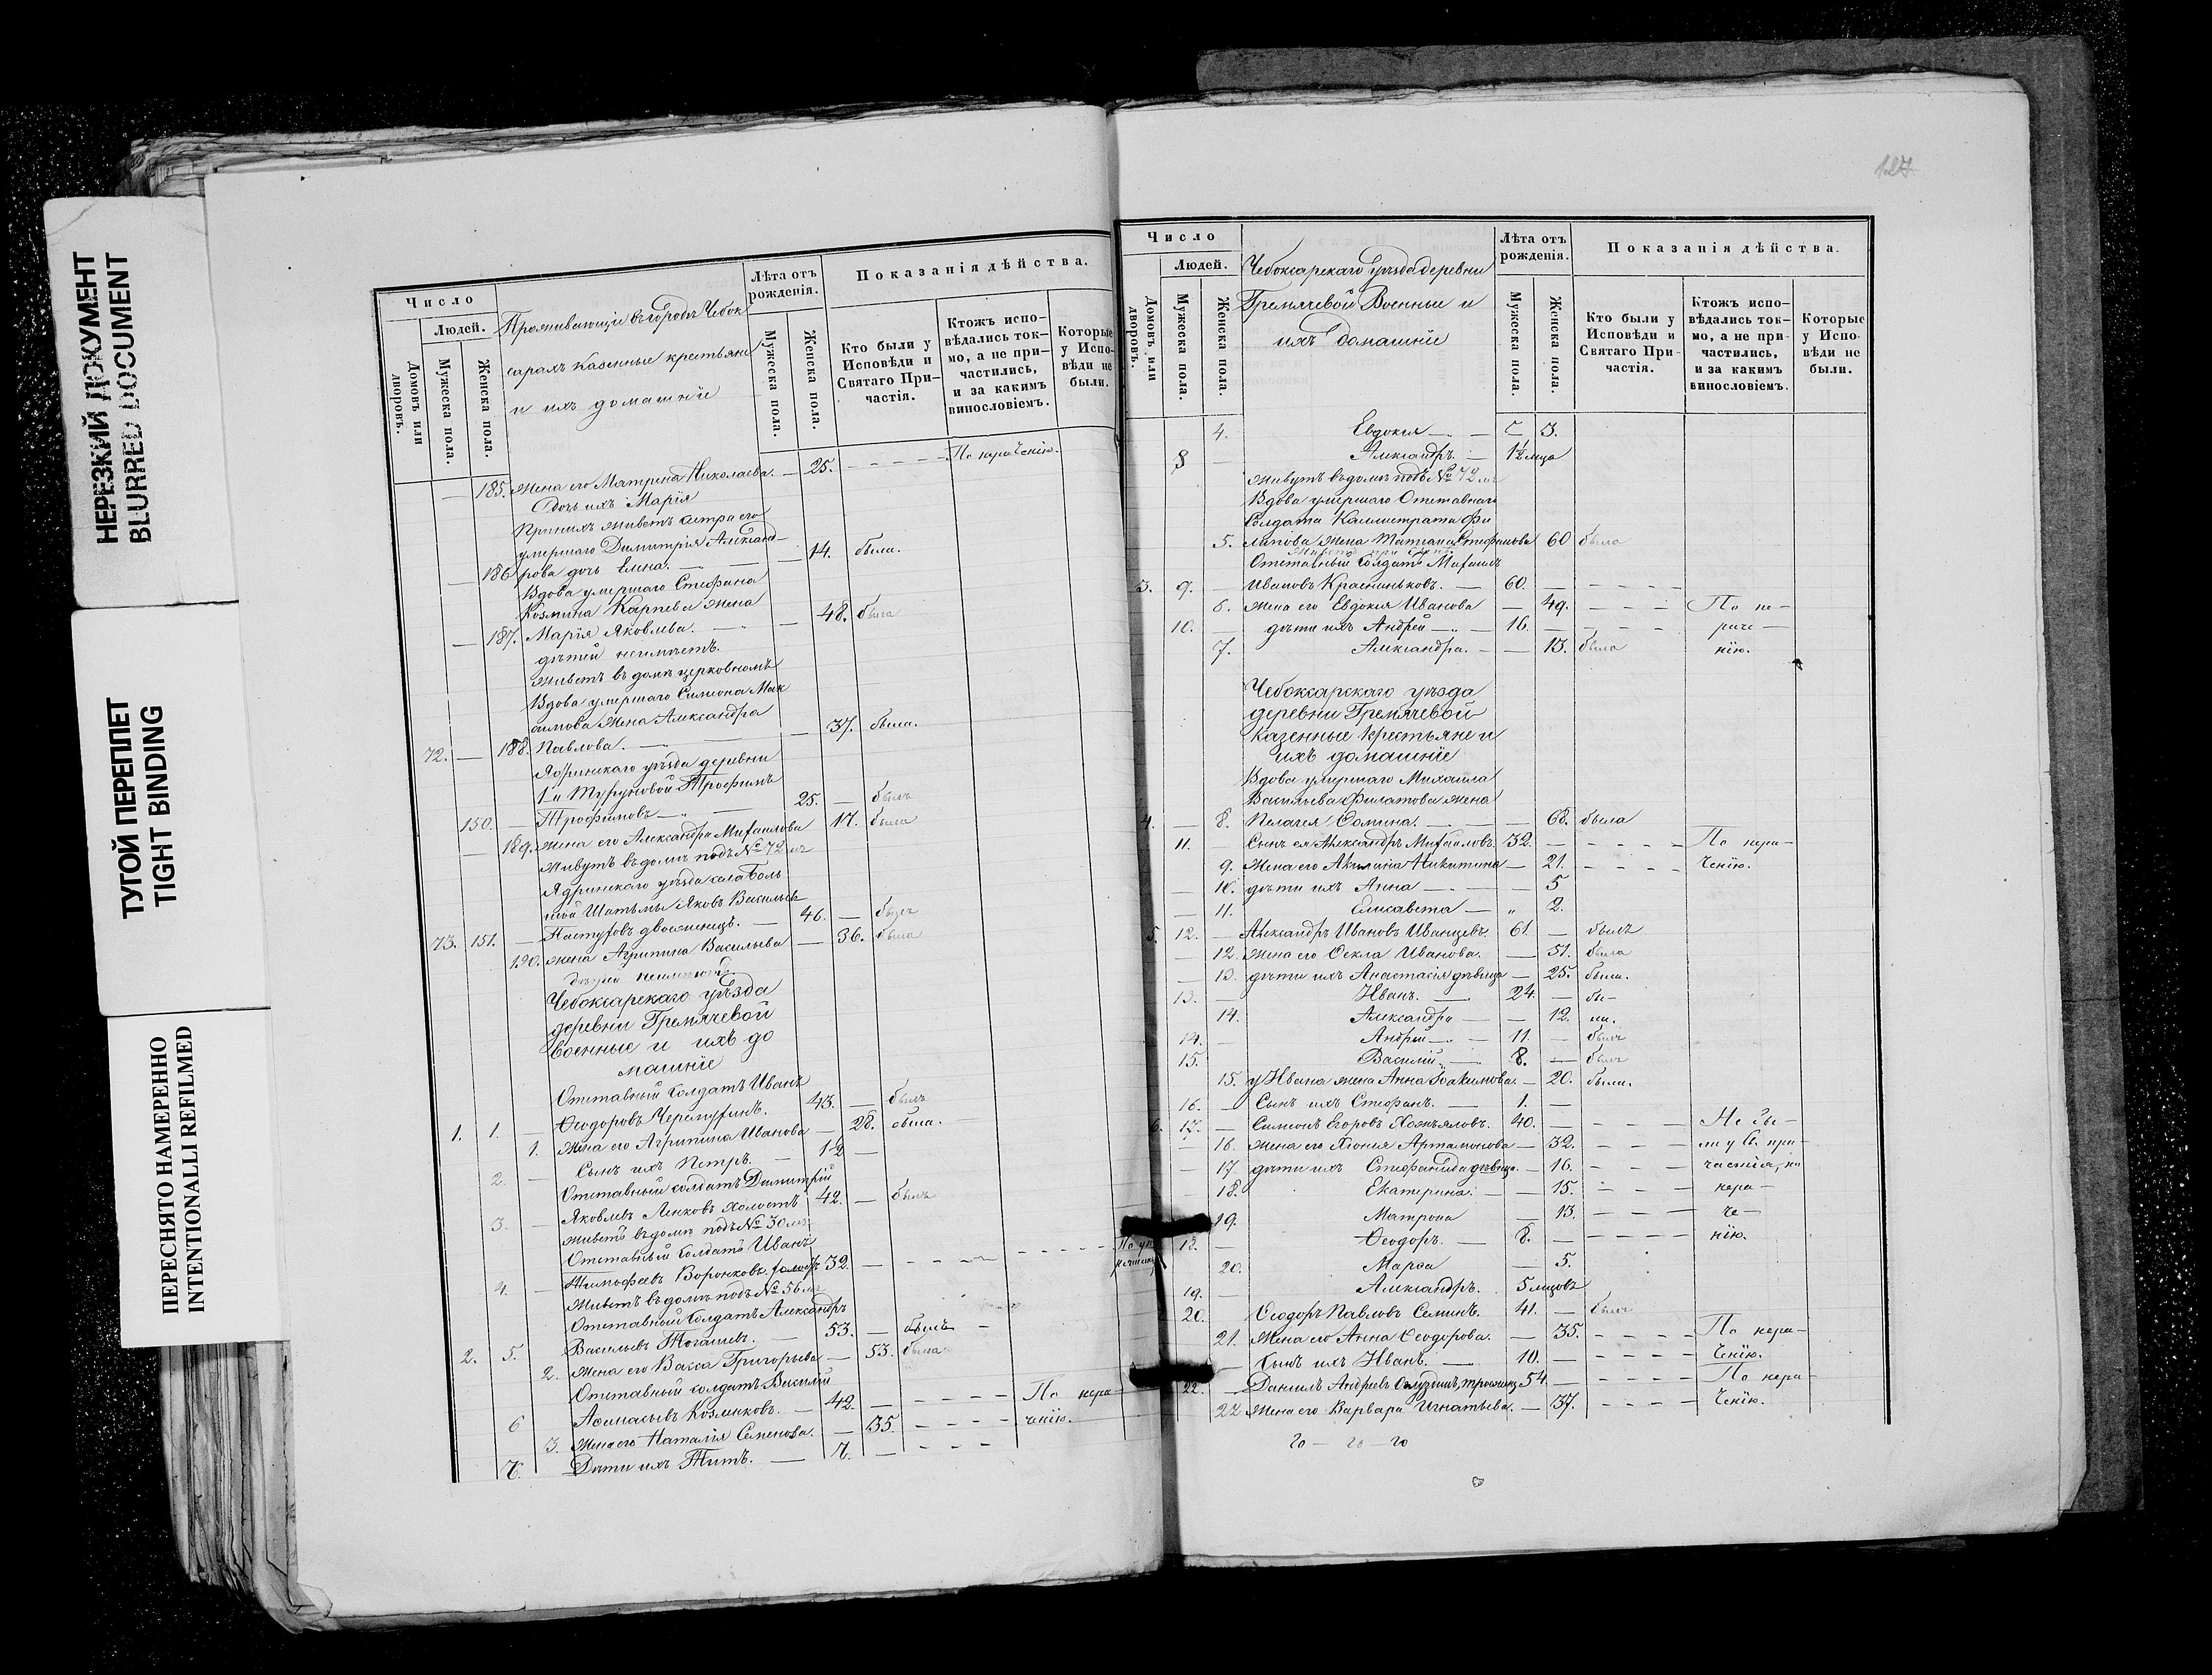 НЕРЕЗКИЙ ДОКУМЕНТ
BLURRED DOCUMENT
ТУГОЙ ПЕРЕПЛЕТ
TIGHT BINDING
ПЕРЕСНЯТО НАМЕРЕННО
INTENTIONALLI REFILMED
Число
Людей.
Домовъ или дворовъ.
Мужеска пола.
Женска пола.
Проживающіе въ городѣ Чебок
сарахъ Казенные крестьяне
и ихъ домашніе
Лѣта отъ рожденія.
Мужеска пола.
Женска пола.
Показанія дѣйства.
Кто были у Исповѣди и Святаго При-частія.
Ктожъ испо-вѣдались ток-мо, а не при-частились, и за какимъ винословіемъ.
Которые у Испо-вѣди не были.
— 185. Жена его Матрена Николаева. — 25. - - - - По нераченію.
Дочь ихъ Марія
При нихъ живетъ сестра его
умершаго Димитрія Александ-
— 186 рова дочь Елена. — — 14. была.
Вдова умершаго Стефана
Козмина Карпева жена
— 187. Марія Яковлева. — — 48. была
дѣтей неимѣетъ.
Живетъ въ домѣ церковномъ
Вдова умершаго Симеона Мак
симова жена Александра
72. — 188. Павлова. — — 37. была.
Ядринскаго уѣзда деревни
Трофимъ
150. — Трофимовъ — 25. — былъ
— 189. Жена его Александра Михаилова 17. была
Живутъ въ домѣ подъ № 72 мъ
Ядринскаго уѣзда села Боль
шой Шатьмы Яковъ Васильевъ
73. 151. — Пастуховъ двоеженецъ. — 46. — былъ
190. жена Агрипина Васильева — 36. была
дѣтей неимѣютъ
Чебоксарскаго уѣзда
деревни Гремячевой
военные и ихъ до
машніе
Отставный солдатъ Иванъ
1. 1. — Ѳеодоровъ Черепухинъ. 43. — былъ
1. Жена его Агрипина Иванова — 28. была.
2. — Сынъ ихъ Петръ. — 12 —
Отставный солдатъ Димитрій
3. — Яковлевъ Ленковъ холостъ 42. — былъ
живетъ въ домѣ подъ № 30 мъ
Отставный солдатъ Иванъ
4. — Тимофеевъ Воронковъ холостъ 32. — - - - -
Живетъ въ домѣ подъ № 56 м
Отставной солдатъ Александръ
2. 5. Васильевъ Тогашевъ. — 53. — былъ
2. Жена его Васса Григорьева — 53. была
Отставный солдатъ Василій
6 Аѳонасьевъ Козленковъ. — 42. — - - - По нера-
3. Жена его Наталія Семенова. — 35. - - - ченію.
7. Дѣти ихъ Титъ. — 7. — - - -
127
Число
Людей.
Домовъ или дворовъ.
Мужеска пола.
Женска пола.
Чебоксарскаго уѣзда деревни
Гремячевой Военные и
ихъ домашніе
Лѣта отъ рожденія.
Мужеска пола.
Женска пола.
Показанія дѣйства.
Кто были у Исповѣди и Святаго При-частія.
Ктожъ испо-вѣдались ток-мо, а не при-частились, и за какимъ винословіемъ.
Которые у Испо-вѣди не были.
4. Евдокія — 3.
8 — Александръ. — 1½ мца
живутъ въ домѣ подъ № 72 мъ
Вдова умершаго Отставнаго
Солдата Каллистрата Фи
5. липова жена Татиана Стефанова 60 была
Отставный солдатъ Михаилъ
3. 9. — Ивановъ Красниньковъ. — 60. — - - - -
6. Жена его Евдокія Иванова — 49. - - - По не-
10. — дѣти ихъ Андрей — 16. — - - - раче-
7. Александра. — — 13. была нію.
Чебоксарскаго уѣзда
деревни Гремячевой
Казенные Крестьяне и
ихъ домашніе
Вдова умершаго Михаила
Васильева Филатова жена
4. — 8. Пелагея Ѳомина. — — 68. была
11. Сынъ ея Александръ Михаиловъ. 32. — - - - По нера-
9. Жена его Акилина Никитина — 21. - - - ченію.
— 10. дѣти ихъ Анна — — 5
— 11. Елисавета — " 2.
5. 12. — Александръ Ивановъ Иванцевъ. 61. — былъ
— 12. Жена его Ѳекла Иванова. — 51. была
— 13. дѣти ихъ Анастасія дѣвица — 25. была.
13. — Иванъ. — 24. — бы-
14. Александра — — 12. ли.
14. — Андрей — 11. — былъ
15. Василій. — 8. — былъ
15. у Ивана жена Анна Іоакимова. — 20. была.
16. — Сынъ ихъ Стефанъ. — 1. —
6. 17. — Симеонъ Егоровъ 40. — - - - Не бы-
— 16. Жена его Хіонія Артамонова — 32. - - - ли у Св. при-
— 17. дѣти ихъ Стефанида дѣвица. — 16. - - - частія, по
— 18. Екатерина. — — 15. - - - нера-
19. Матрона — 13. - - - че-
18. — Ѳеодоръ. — 8. — - - - нію.
20. Марѳа — 5.
19. — Александръ. 5 мцовъ
20. Ѳеодоръ Павловъ Семинъ. 41. — былъ
21. Жена его Анна Ѳеодорова. — 35. - - - По нера-
— Сынъ ихъ Иванъ. — 10. — - - - ченію.
22. — Даніилъ Андреевъ троеженецъ 54. — - - - По нера-
22 Жена его Варвара Игнатьева. — 37. - - - ченію.